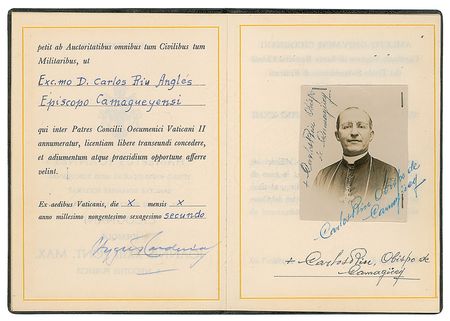 petit ab Auctoritatibus omnibus tum Civilibus tum
Militaribus, ut
Exc.mo D. Carlos Riu Anglés
Episcopo Camagueyensi
qui inter Patres Concilii Oecumenici Vaticani II
annumeratur, licentiam libere transeundi concedere,
et adiumentum atque praesidium opportune afferre
velint.
Ex aedibus Vaticanis, die X mensis X
anno millesimo nongentesimo sexagesimo secundo
+ Carlos Riu, Obispo
Camagüey
Carlos Riu, Obispo de
Camagüey
+ Carlos Riu, Obispo de
Camagüey